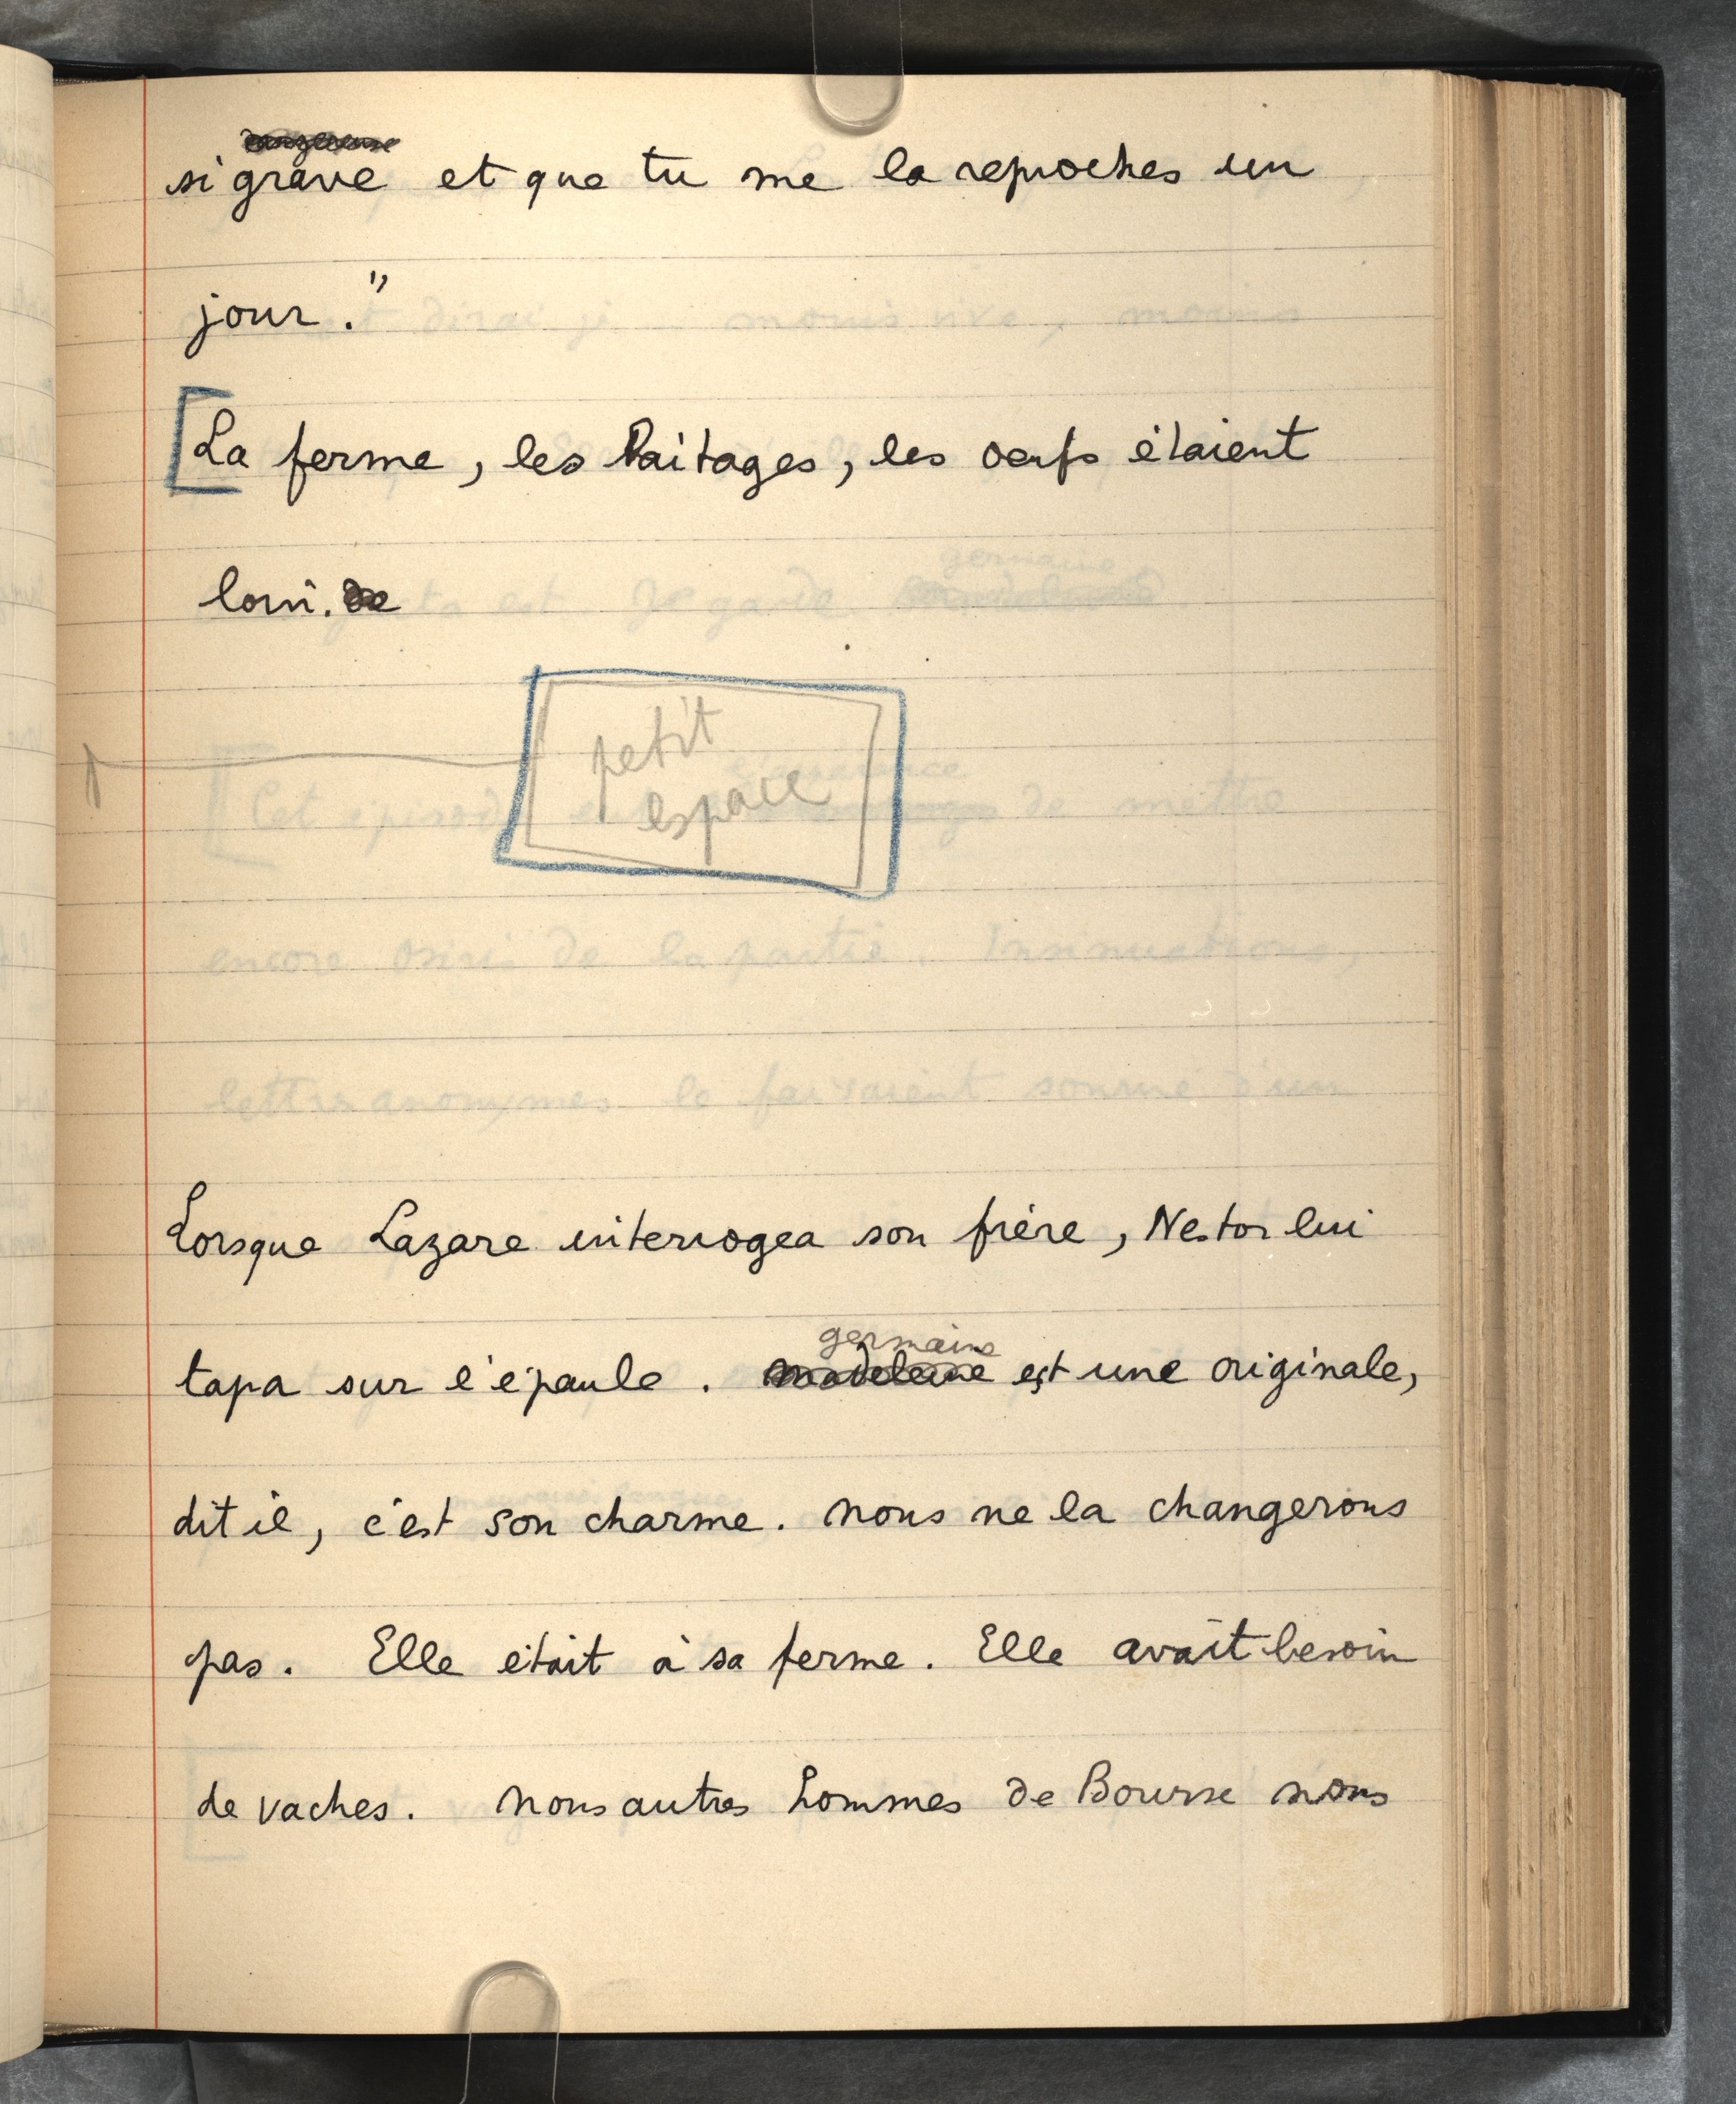 dangereuse
si grave et que tu me la reproches un
jour."
[La ferme, les laitages, les oeufs étaient
loin. de
petit
espace
Lorsque Lazare interrogea son frère, Nestor lui
germaine
tapa sur l'épaule. madeleine est une originale,
dit il, c'est son charme. nous ne la changerons
pas. Elle était à sa ferme. Elle avait besoin
de vaches. nous autres hommes de Bourse nous